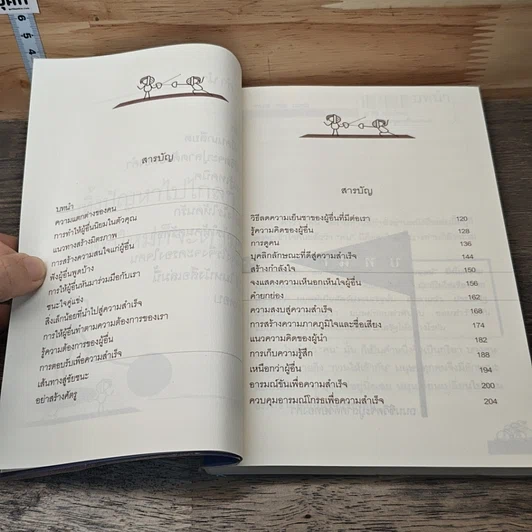 สารบัญ
บทนำ
ความแตกต่างของคน
การทำให้ผู้อื่นนิยมในตัวคุณ
แนวทางสร้างมิตรภาพ
การสร้างความสนใจแก่ผู้อื่น
ฟังผู้อื่นพูดบ้าง
การให้ผู้อื่นหันมาร่วมมือกับเรา
ชนะใจคู่แข่ง
สิ่งเล็กน้อยที่นำไปสู่ความสำเร็จ
การให้ผู้อื่นทำตามความต้องการของเรา
รู้ความต้องการของผู้อื่น
การตอบรับเพื่อความสำเร็จ
เส้นทางสู่ชัยชนะ
อย่าสร้างศัตรู
สารบัญ
วิธีลดความเย็นชาของผู้อื่นที่มีต่อเรา 120
รู้ความคิดของผู้อื่น 128
การดูคน 136
บุคลิกลักษณะที่ดีสู่ความสำเร็จ 144
สร้างกำลังใจ 150
จงแสดงความเห็นอกเห็นใจผู้อื่น 156
ค่ายกย่อง 162
ความสงบสู่ความสำเร็จ 168
การสร้างความภาคภูมิใจและชื่อเสียง 174
แนวความคิดของผู้นำ 182
การเก็บความรู้สึก 188
เหนือกว่าผู้อื่น 194
อารมณ์ขันเพื่อความสำเร็จ 200
ควบคุมอารมณ์โกรธเพื่อความสำเร็จ 204
6
5
4